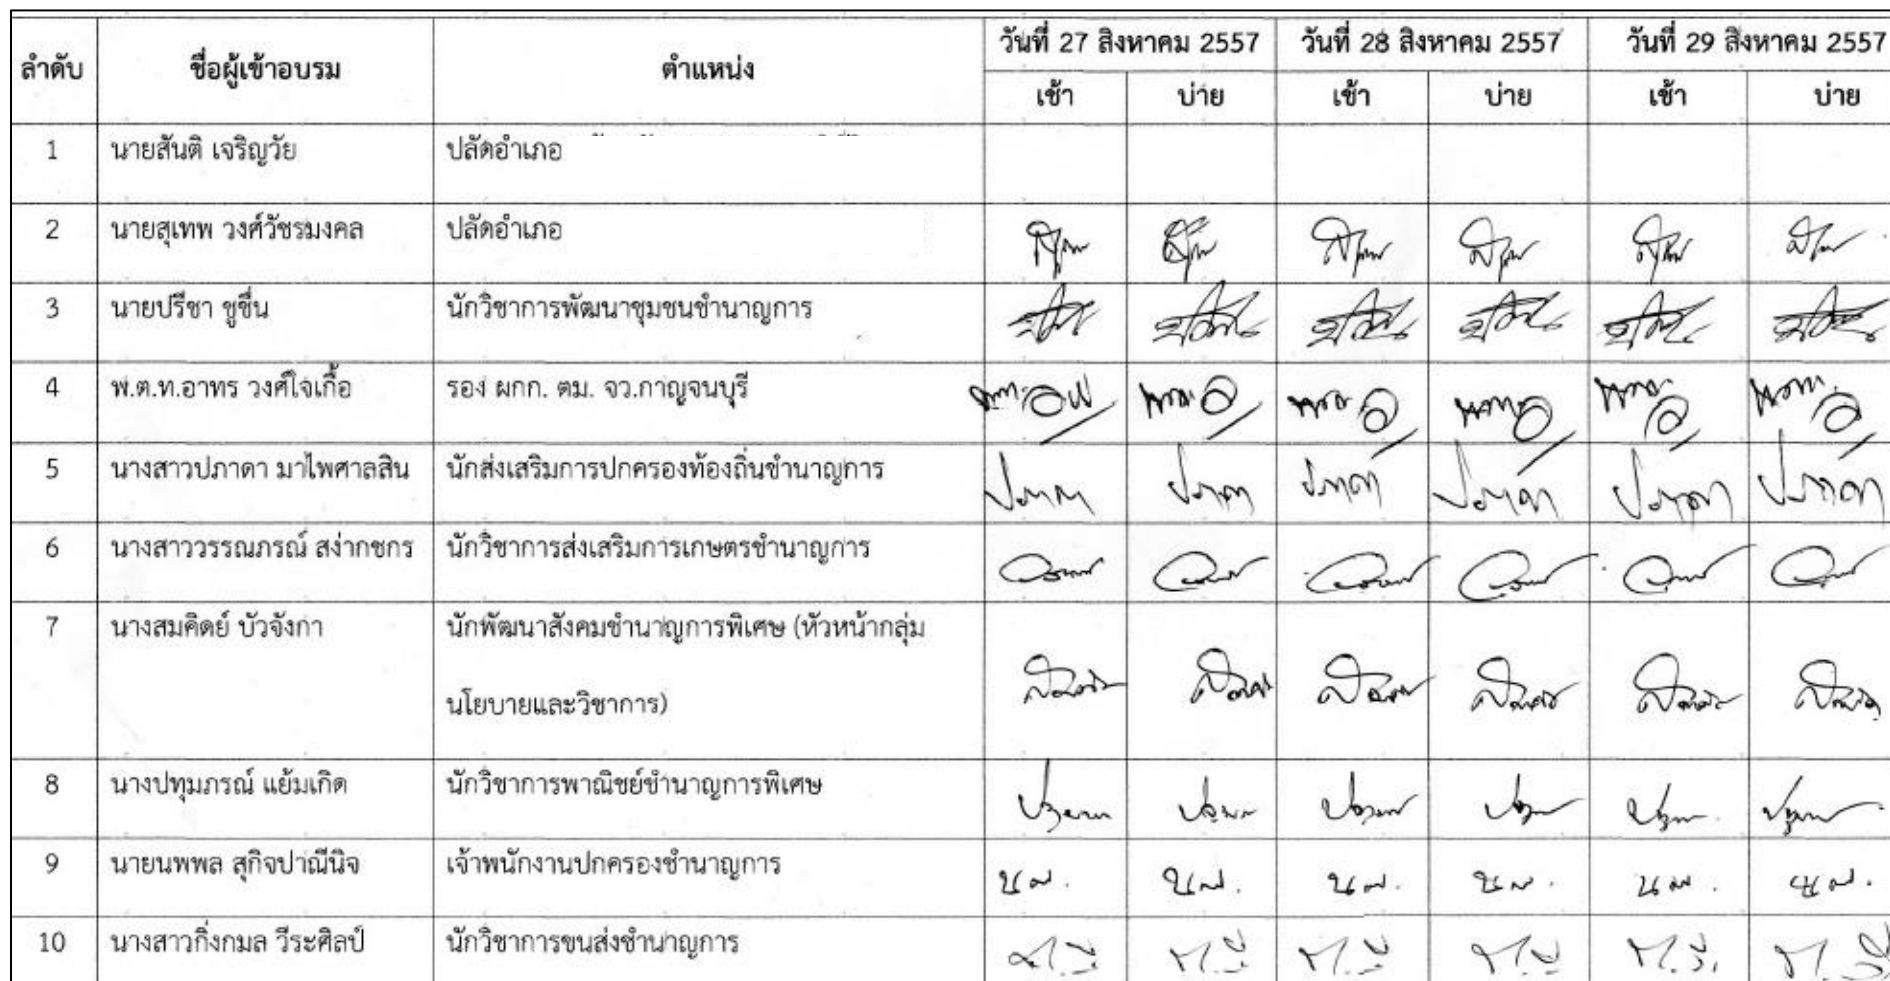 ลำดับ ชื่อผู้เข้าอบรม ตำแหน่ง วันที่ 27 สิงหาคม 2557 วันที่ 28 สิงหาคม 2557 วันที่ 29 สิงหาคม 2557
เช้า บ่าย เช้า บ่าย เช้า บ่าย
1 นายสันติ เจริญวัย ปลัดอำเภอ
2 นายสุเทพ วงศ์วัชรมงคล ปลัดอำเภอ
3 นายปรีชา ชูชื่น นักวิชาการพัฒนาชุมชนชำนาญการ
4 พ.ต.ท.อาทร วงศ์ใจเกื้อ รอง ผกก. ตม. จว.กาญจนบุรี
5 นางสาวปภาดา มาไพศาลสิน นักส่งเสริมการปกครองท้องถิ่นชำนาญการ
ปภาดา ปภาดา ปภาดา ปภาดา ปภาดา ปภาดา
6 นางสาววรรณภรณ์ สง่ากชกร นักวิชาการส่งเสริมการเกษตรชำนาญการ
7 นางสมคิดย์ บัวจังกา นักพัฒนาสังคมชำนาญการพิเศษ (หัวหน้ากลุ่ม
นโยบายและวิชาการ)
8 นางปทุมภรณ์ แย้มเกิด นักวิชาการพาณิชย์ชำนาญการพิเศษ
9 นายนพพล สุกิจปาณีนิจ เจ้าพนักงานปกครองชำนาญการ
นพ. นพ. นพ. นพ. นพ. นพ.
10 นางสาวกิ่งกมล วีระศิลป์ นักวิชาการขนส่งชำนาญการ